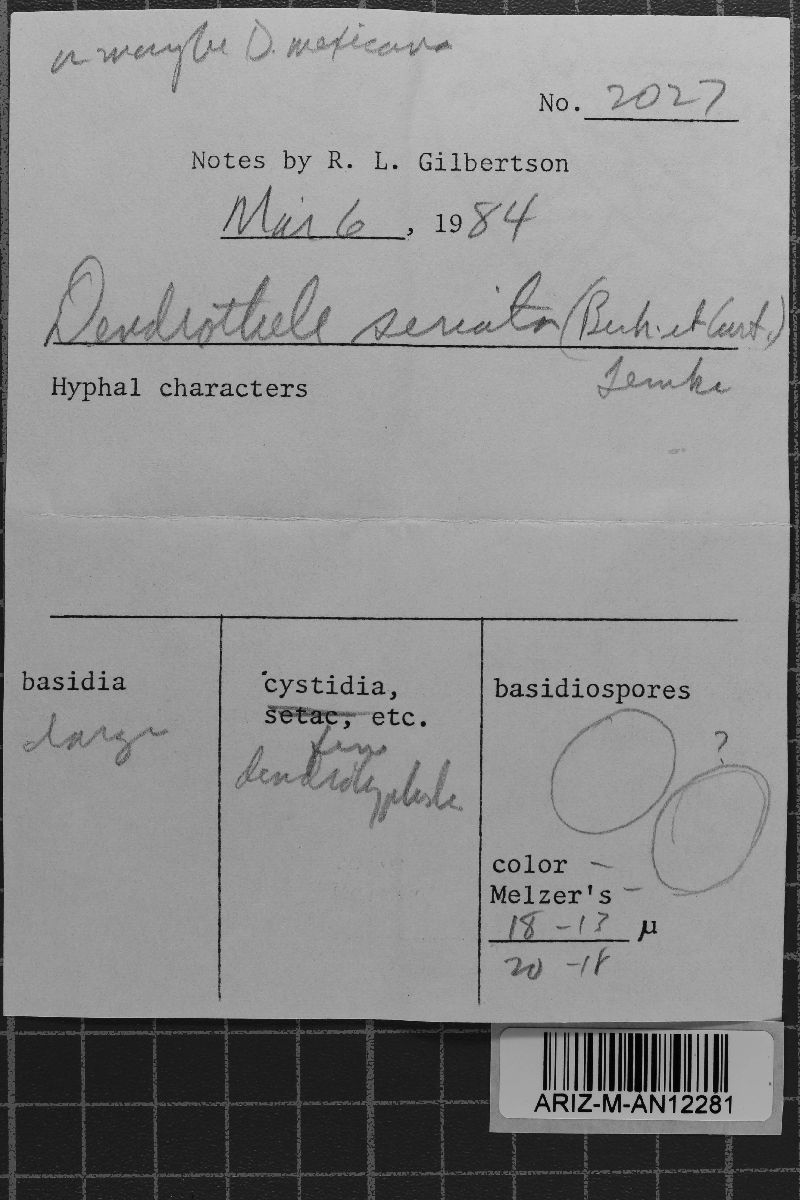 or maybe D. mexicana
No. 2027
Notes by R. L. Gilbertson
Mar 6, 1984
Dendrothele seriata (Berk. et Curt.)
Lemke
Hyphal characters
basidia
large
cystidia,
setac, etc.
few
dendrohyphidia
basidiospores
?
color —
Melzer's —
18 - 13 µ
20 - 18
ARIZ-M-AN12281